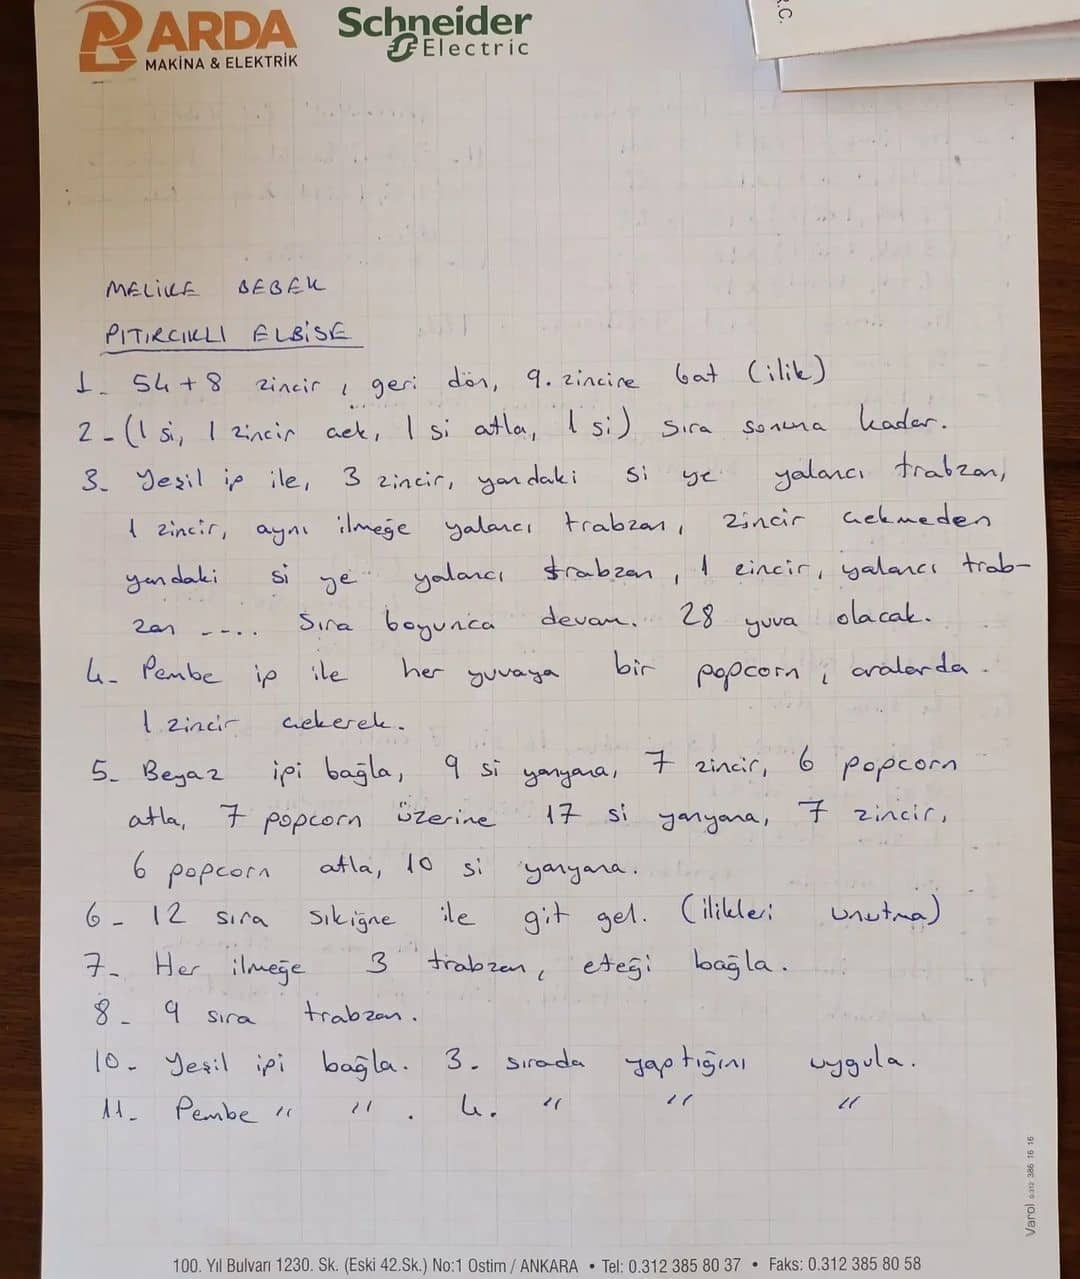 ARDA
MAKİNA & ELEKTRİK
Schneider
Electric
MELİKE BEBEK
PITIRCIKLI ELBİSE
1- 54+8 zincir, geri dön, 9. zincire bat (ilik)
2-(1 si, 1 zincir çek, 1 si atla, 1 si) sıra sonuna kadar.
3- Yeşil ip ile, 3 zincir, yandaki si ye yalancı trabzan,
1 zincir, aynı ilmeğe yalancı trabzan, zincir çekmeden
yandaki si ye yalancı trabzan, 1 zincir, yalancı trab-
zan ---.. Sıra boyunca devam. 28 yuva olacak.
4- Pembe ip ile her yuvaya bir popcorn, aralarda
1 zincir çekerek.
5- Beyaz ipi bağla, 9 si yanyana, 7 zincir, 6 popcorn
atla, 7 popcorn üzerine 17 si yanyana, 7 zincir,
6 popcorn atla, 10 si yanyana.
6- 12 sıra sıkiğne ile git gel. (ilikleri unutma)
7- Her ilmeğe 3 trabzan, eteği bağla.
8- 9 sıra trabzan.
10- Yeşil ipi bağla. 3. sırada yaptığını uygula.
11- Pembe " " . 4. " " "
100. Yıl Bulvarı 1230. Sk. (Eski 42.Sk.) No:1 Ostim / ANKARA • Tel: 0.312 385 80 37 • Faks: 0.312 385 80 58
Varol 0.312 386 16 16